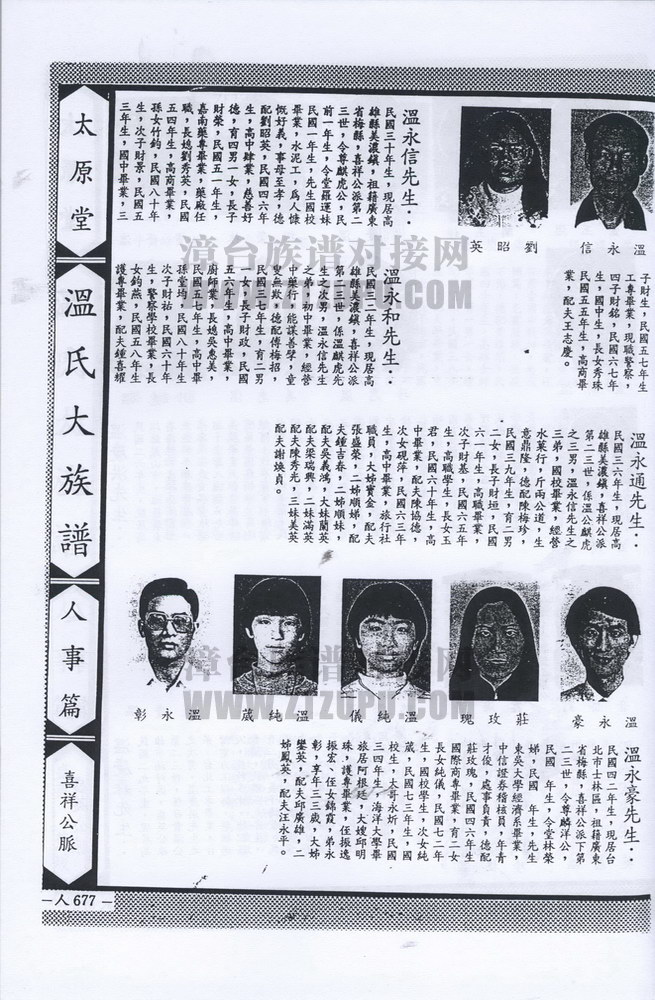 太原堂
溫氏大族譜
人事篇
喜祥公脈
—人 677—
溫永信
劉昭英
溫永信先生：
民國三十年生，現居高
雄縣美濃鎮，祖籍廣東
省梅縣，喜祥公派第二
三世，令尊麒虎公，民
前一年生，令堂羅運妹
民國一年生，先生國校
畢業，水泥工，爲人慷
慨好義，事母至孝，德
配劉昭英，民國四六年
生，高中肄業，慈善好
德，育四男一女，長子
財榮，民國五一年生，
嘉南藥專畢業，藥廠任
職，長媳劉秀英，民國
五四年生，高商畢業，
孫女竹鈞，民國八十年
生，次子財景，民國五
三年生，國中畢業，三
子財生，民國五七年生
工專畢業，現職警察，
四子財銘，民國六七年
生，國中生，長女秀珠
民國五五年生，高商畢
業，配夫王志慶。
溫永和先生：
民國三二年生，現居高
雄縣美濃鎮，喜祥公派
第二三世，係溫麒虎先
生之次男，溫永信先生
之弟，初中畢業，經營
中藥行，能謀善擘，童
叟無欺，德配傅梅招，
民國三七年生，育二男
一女，長子財政，民國
五六年生，高中畢業，
廚師業，長媳吳惠美，
民國五七年生，高中畢
孫堂均，民國八十年生
次子財祐，民國六十年
生，警察學校畢業，長
女鈞燕，民國五八年生
護專畢業，配夫鍾喜耀
溫永通先生：
民國三六年生，現居高
雄縣美濃鎮，喜祥公派
第二三世，係溫公麒虎
之三男，溫永信先生之
三弟，國校畢業，經營
水菓行，斤兩公道，生
意鼎隆，德配陳梅珍，
民國三九年生，育二男
二女，長子財垣，民國
六一年生，高職畢業，
次子財基，民國六五年
生，高職學生，長女玉
君，民國六十年生，高
中畢業，配夫陳協德，
次女硯萍，民國六三年
生，高中畢業，旅行社
職員，大姊寶金，配夫
張盛榮，二姊順娣，配
夫鍾吉春，二姊順妹，
配夫吳義鴻，大妹蘭英
配夫梁瑞興，二妹滿英
配夫陳秀光，三妹美英
配夫謝煥貞。
溫永豪
莊玫瑰
溫純儀
溫純葳
溫永彰
溫永豪先生：
民國四二年生，現居台
北市士林區，祖籍廣東
省梅縣，喜祥公派下第
二三世，令尊麟洋公，
民國　年生，令堂林榮
娣，民國　年生，先生
東吳大學經濟系畢業，
中信證券稽核員，年青
才俊，處事負責，德配
莊玫瑰，民國四六年生
國際商專畢業，育二女
長女純儀，民國七二年
生，國校學生，次女純
葳，民國七三年生，國
校生，大哥永炘，民國
三四年生，海洋大學畢
旅居阿根廷，大嫂邱明
珠，護專畢業，侄振逸
振宏，侄女錦霞，弟永
彰，享年三三歲，大姊
鑾英，配夫邱廣雄，二
姊鳳英，配夫汪永平。
漳台族谱对接网
漳台族谱对接网
WWW.ZTZUPU.COM